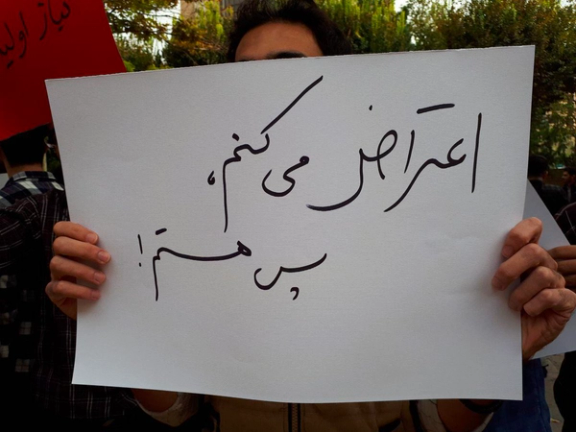 اعتراض می کنم،
پس هستم!
نیاز اولیه